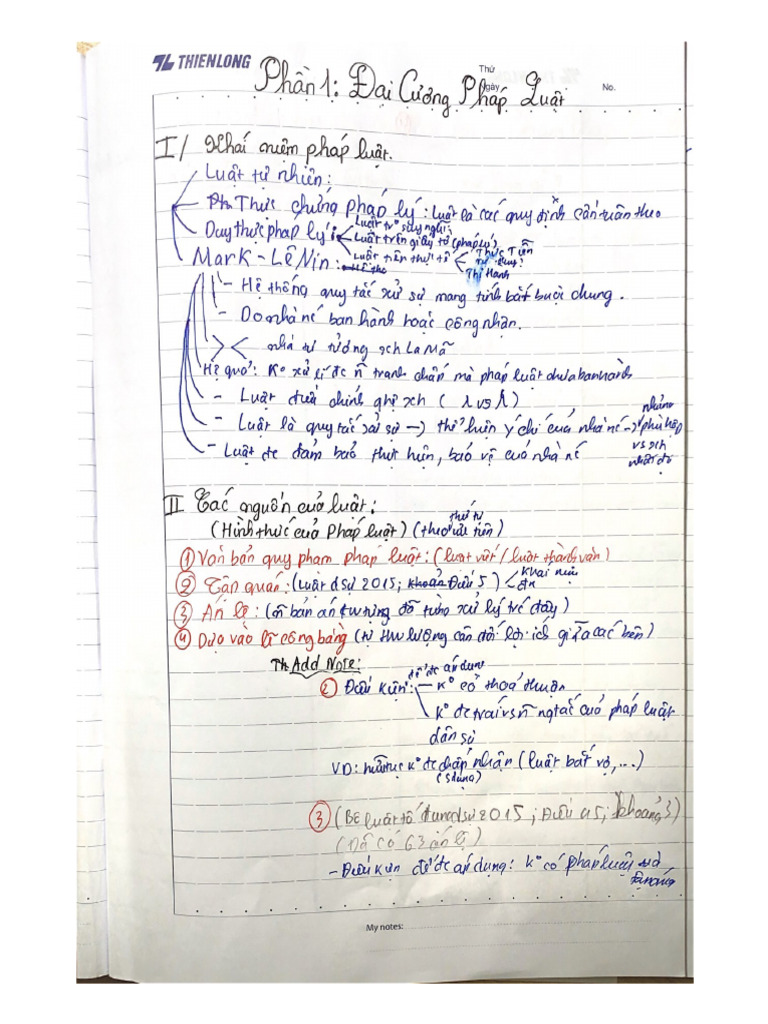 THIENLONG
Thứ
Ngày
No.
Phần 1: Đại Cương Pháp Luật
I/ Khái niệm pháp luật.
Luật tự nhiên:
Thực chứng pháp lý: luật là các quy định cần tuân theo
Duy thực pháp lý:
Luật trg suy nghĩ
Luật trên giấy tờ (pháp lý)
Luật trên thực tế
Thực Tiễn
Thi Hành
Mark - Lê Nin:
- Hệ thống quy tắc xử sự mang tính bắt buộc chung.
- Do nhà nc ban hành hoặc công nhận.
>< nhà tư tưởng xch La Mã
Hệ quả: Ko xử lí đc n~ tranh chấp mà pháp luật chưa ban hành
- Luật điều chỉnh qhệ xch
- Luật là quy tắc xử sự -> thể hiện ý chí của nhà nc -> phù hợp
vs xch
nhất đó
- Luật đc đảm bảo thực hiện, bảo vệ của nhà nc
II Các nguồn của luật:
(Hình thức của Pháp luật) (theo thứ tự ưu tiên)
① Văn bản quy phạm pháp luật: (luật viết / luật thành văn)
② Tập quán: (Luật dsự 2015; khoản Điều 5)
khái niệm
đk
③ Án lệ: (n~ bản án tương tự đã từng xử lý trc đây)
④ Dựa vào lẽ công bằng (tư tưởng cân đối lợi ích giữa các bên)
Th Add Note:
② Điều kiện: để đc áp dụng
- Ko có thoả thuận
Ko đc trái vs n~ ngtắc của pháp luật
dân sự
VD: hủ tục ko đc chấp nhận (luật bắt vợ, ...)
(sdụng)
③ (Bộ luật tố tụng dsự 2015; Điều 45; khoản 3)
(Đã có 63 án lệ)
- Điều kiện để đc áp dụng: ko có pháp luật
My notes: